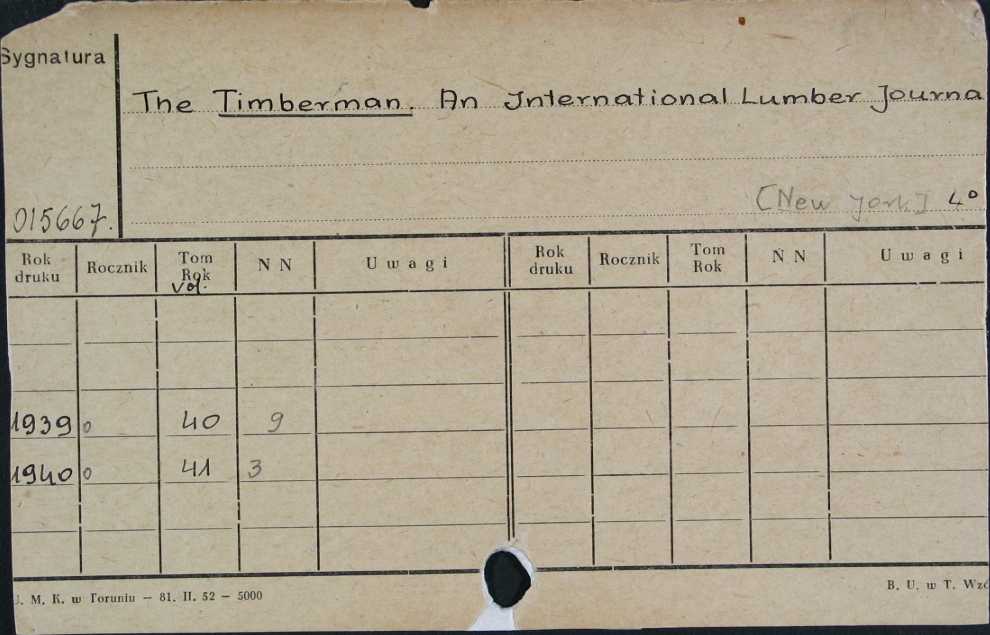 Sygnatura
The Timberman. An International Lumber Journa
[New York] 4°
015667.
Rok druku Rocznik Tom Rok vol. N N Uwagi Rok druku Rocznik Tom Rok N N Uwagi
1939 o 40 9
1940 o 41 3
U. M. K. w Toruniu — 81. II. 52 — 5000
B. U. w T. Wzó